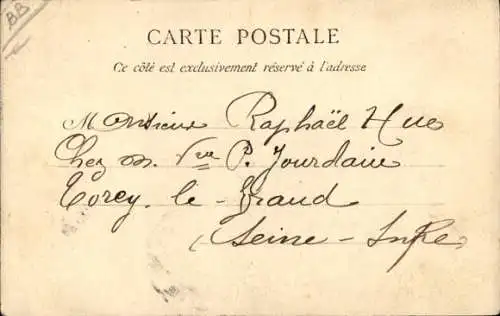 BB
CARTE POSTALE
Ce côté est exclusivement réservé à l'adresse
Monsieur Raphaël Hue
Chez M. Vve P. Jourdain
Torcy-le-Grand
Seine-Infre